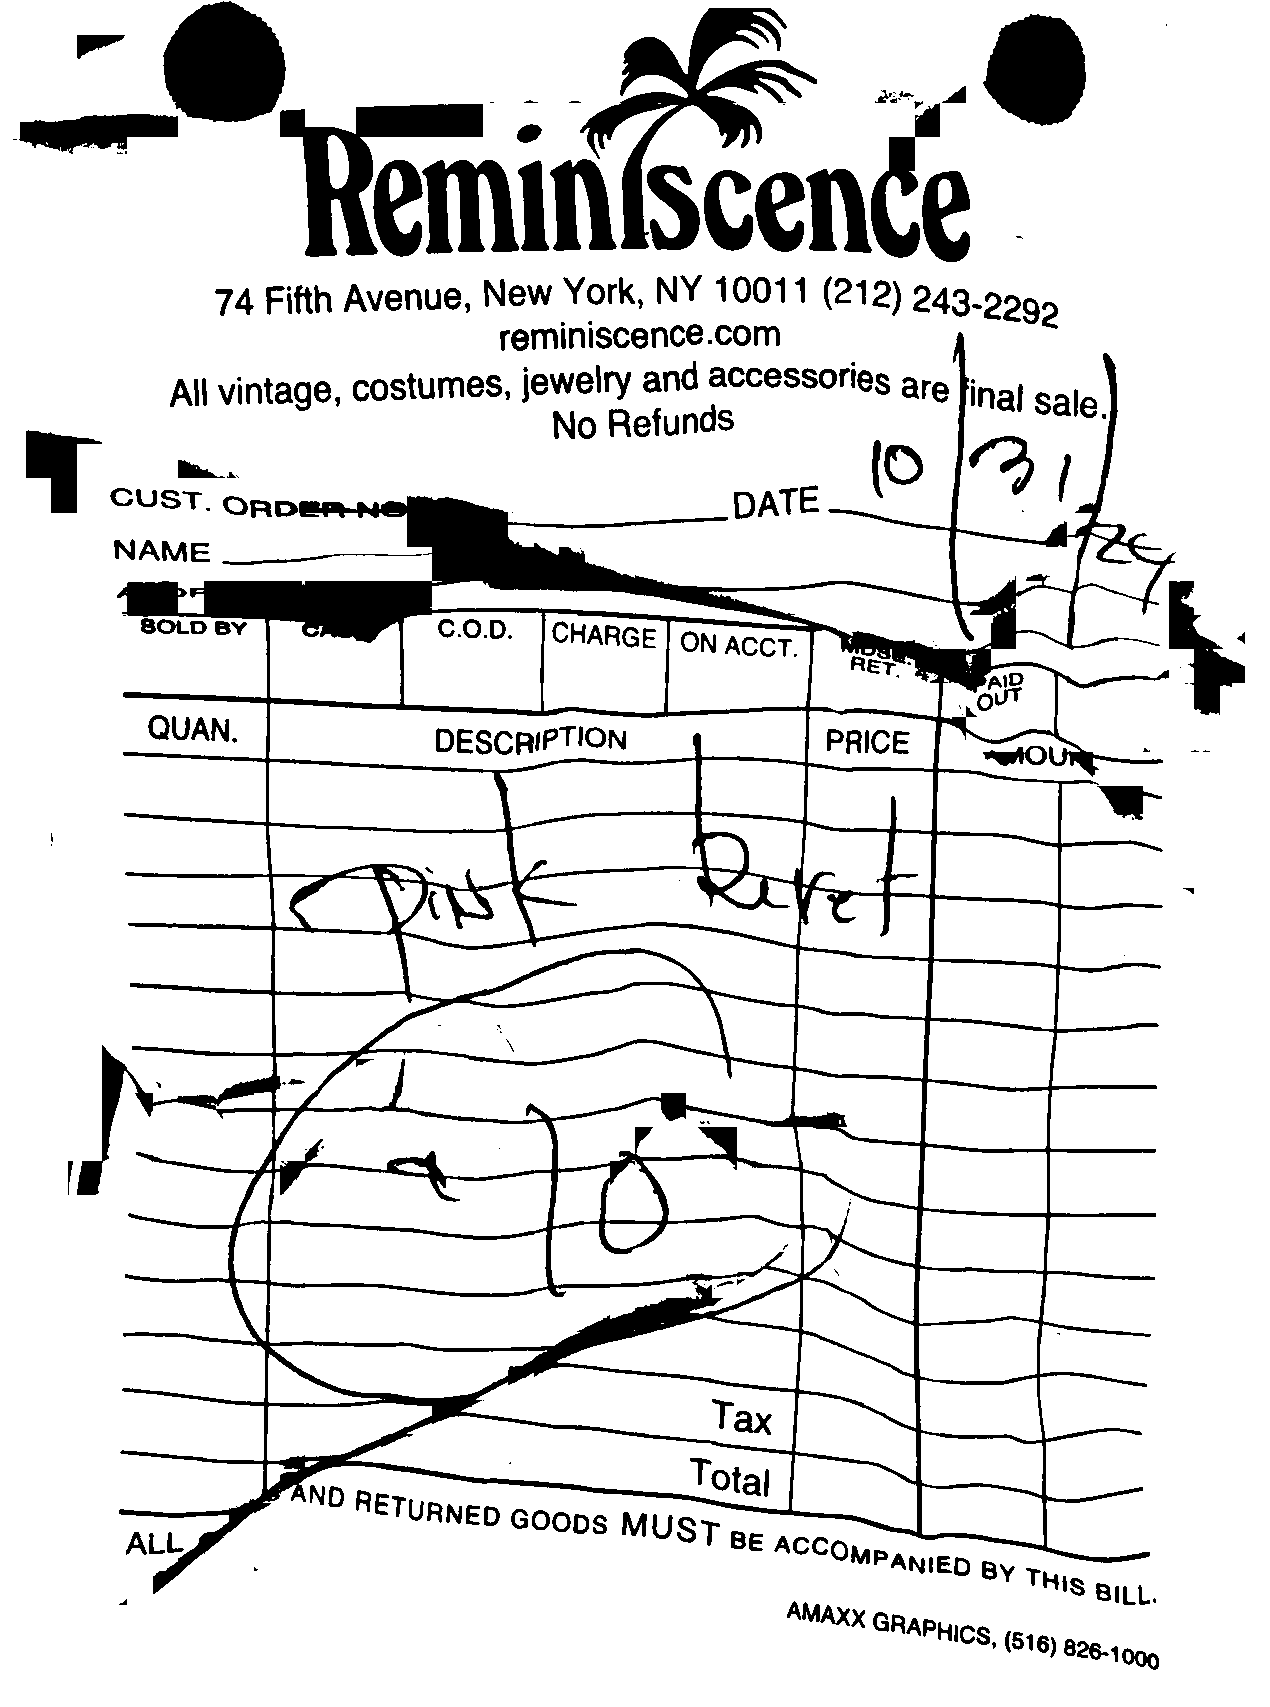 Reminiscence
74 Fifth Avenue, New York, NY 10011 (212) 243-2292
reminiscence.com
All vintage, costumes, jewelry and accessories are final sale.
No Refunds
CUST. ORDER NO
DATE 10 / 31 / 24
NAME
SOLD BY C.O.D. CHARGE ON ACCT. MDSE. RET. PAID OUT
QUAN. DESCRIPTION PRICE AMOUNT
Pink
Tax
Total
ALL AND RETURNED GOODS MUST BE ACCOMPANIED BY THIS BILL.
AMAXX GRAPHICS, (516) 826-1000